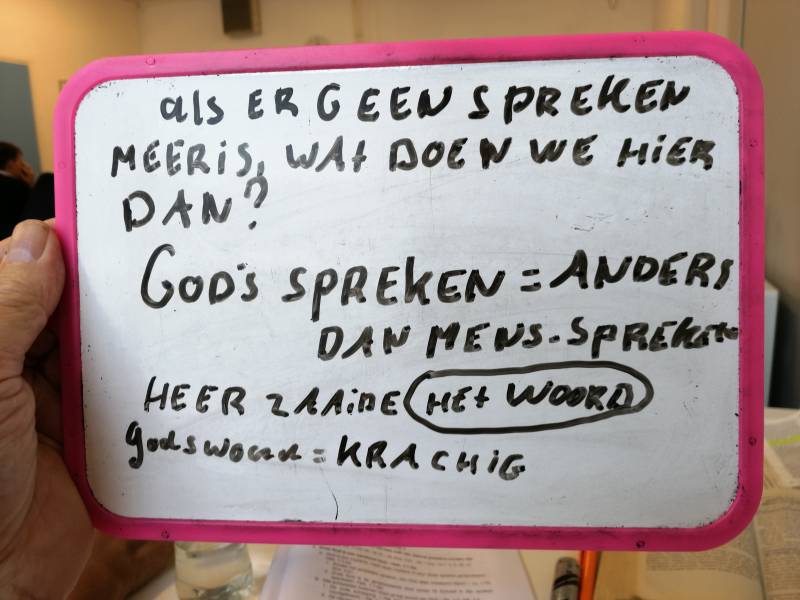 als ER GEEN SPREKEN
MEER iS, WAt DOEN WE HiER
DAN?
GOD'S SPREKEN = ANDERS
DAN MENS-SPREKEN
HEER ZAAiDE HEt WOORD
godswoord = KRACHiG